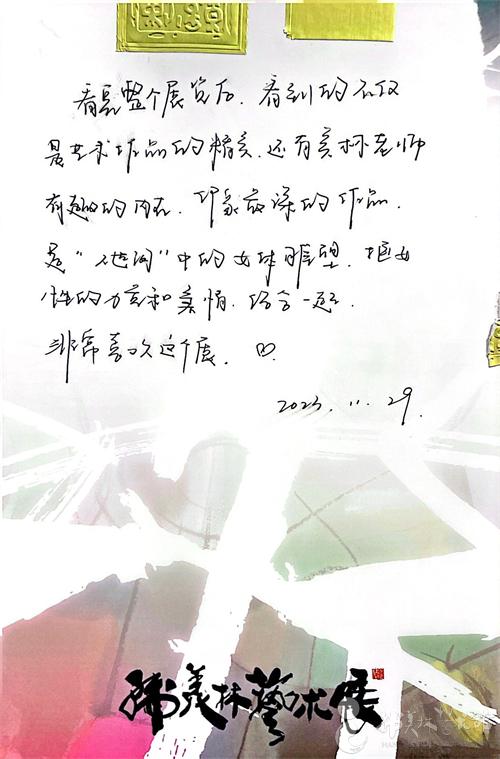 看完整个展览后，看到的不仅
是艺术作品的精美，还有美林老师
有趣的内在，印象最深的作品，
是“人世间”中的女体雕塑，把女
性的力量和柔情，结合一起，
非常喜欢这个展。
2023.11.29.
韩美林艺术展